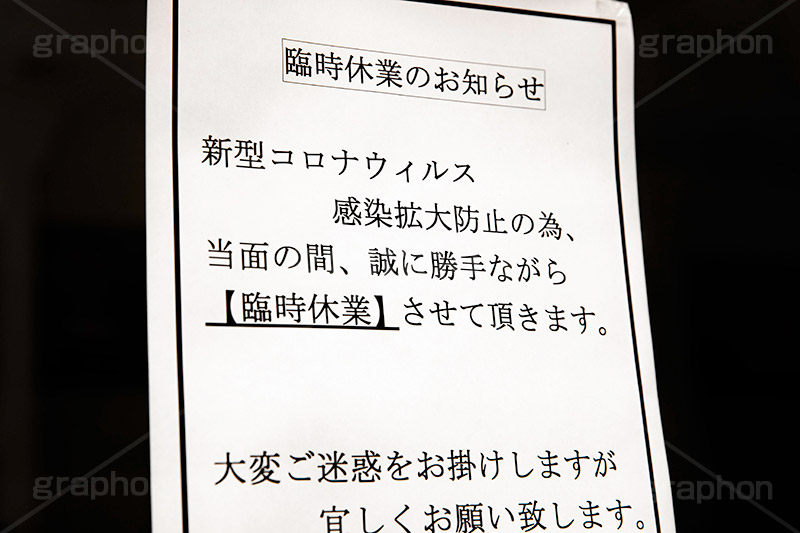 臨時休業のお知らせ
新型コロナウィルス
感染拡大防止の為、
当面の間、誠に勝手ながら
【臨時休業】させて頂きます。
大変ご迷惑をお掛けしますが
宜しくお願い致します。
graphon
graphon
graphon
graphon